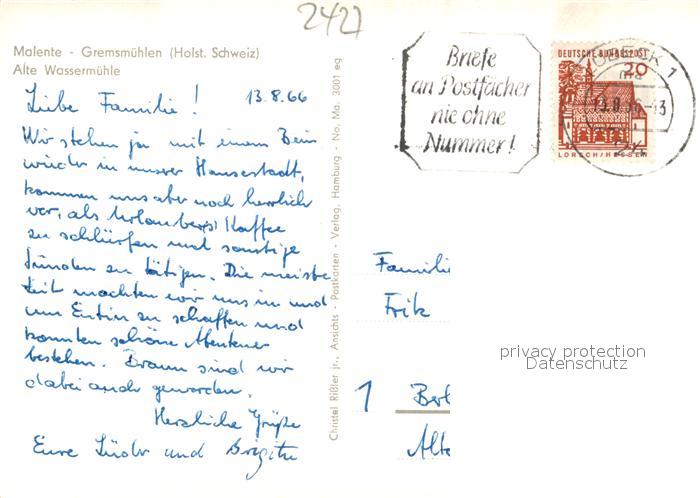 2427
Malente - Gremsmühlen (Holst. Schweiz)
Alte Wassermühle
Liebe Familie! 13.8.66
Wir stehen ja mit einem Bein
wieder in unserer Hansestadt,
kommen uns aber noch herrlich
vor, als Urlauber Kaffee
zu schlürfen und sonstige
Sünden zu tätigen. Die meiste
Zeit machten wir uns in und
um Eutin zu schaffen und
konnten schöne Abenteuer
bestehen. Braun sind wir
dabei auch geworden.
Herzliche Grüße
Eure und Brigitte
Christel Rißler jr., Ansichts - Postkarten - Verlag, Hamburg - No. Ma. 3001 eg
Briefe
an Postfächer
nie ohne
Nummer!
DEUTSCHE BUNDESPOST
20
LORSCH/HESSEN
LÜBECK 1
Famili
Frik
1 Berl
Alte
privacy protection
Datenschutz